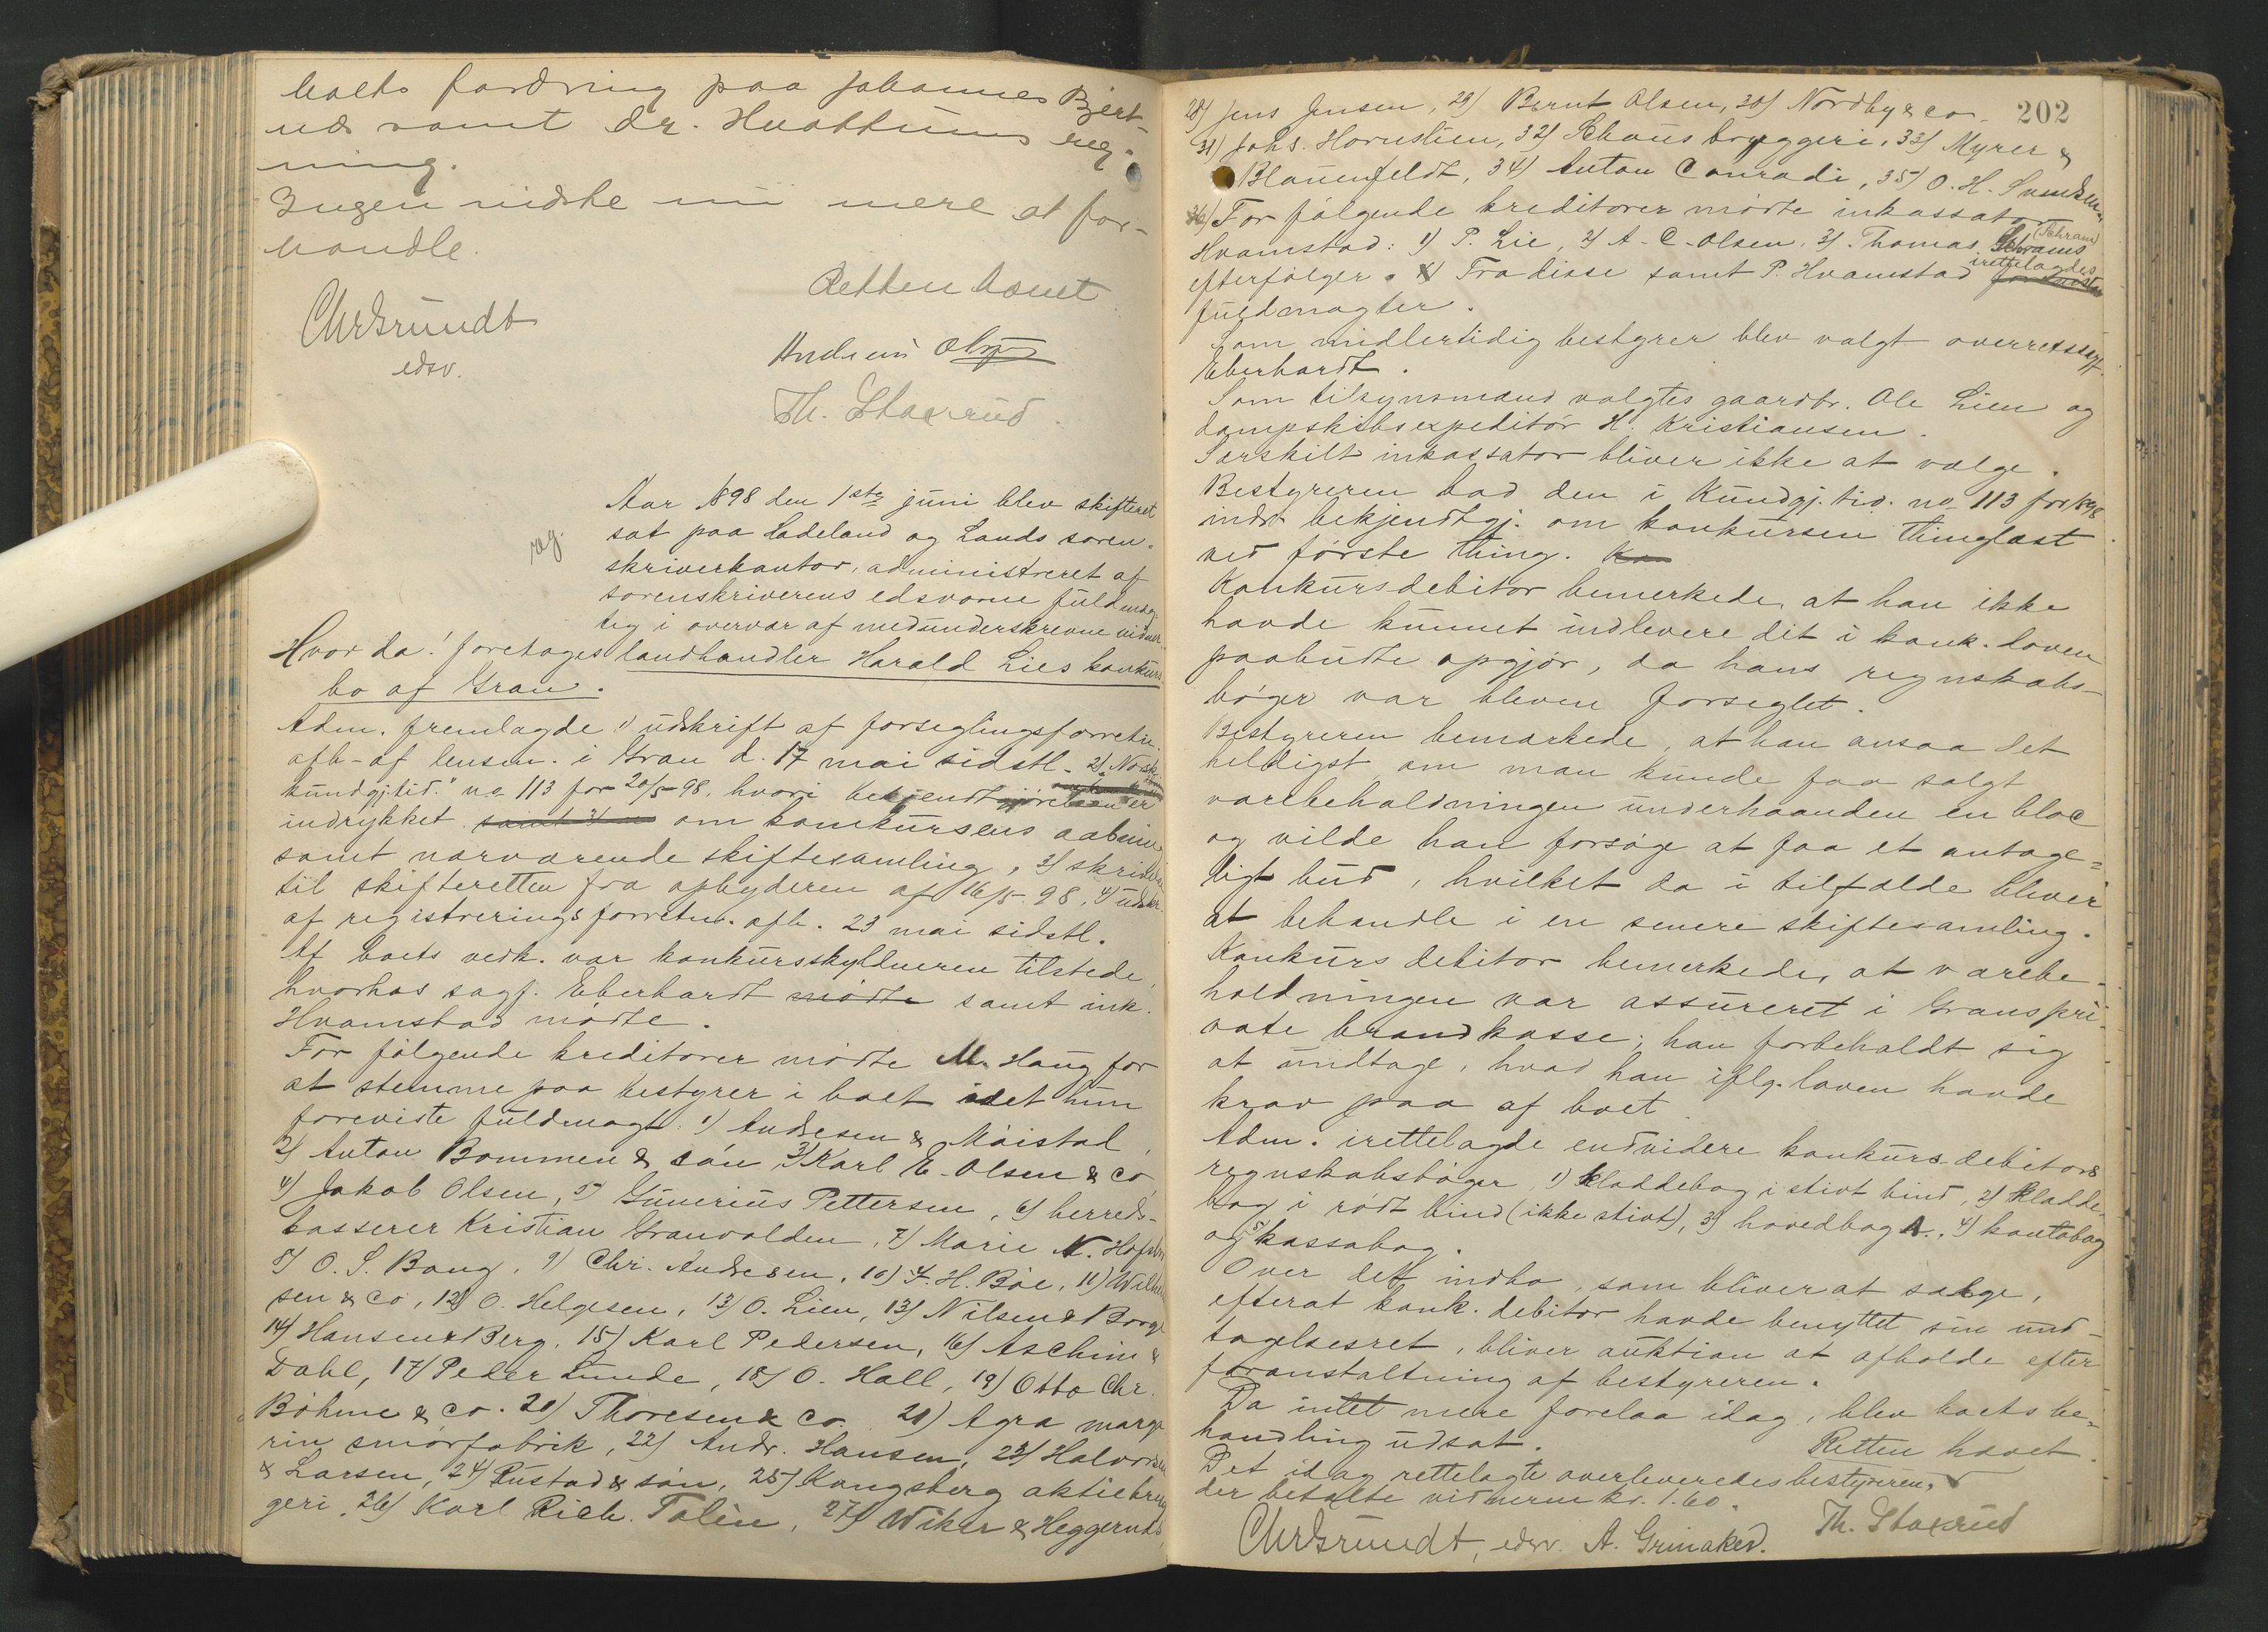 boets fordring paa Johannes Bjert-
nes samt Dr. Hvattums reg-
ning.
Ingen vidste nu mere at for-
handle.
Retten hævet
Chr Grundt
edsv.
Th. Staxrud
Aar 1898 den 1ste juni blev skifteret
reg.
sat paa Hadeland og Lands soren-
skriverkontor, administreret af
sorenskriverens edsvorne fuldmæg
tig i overvær af medunderskrevne vidner.
Hvor da! foretoges landhandler Harald Lies konkurs
bo af Gran.
Adm. fremlagde 1) udskrift af forseglingsforretn.
afh. af lensm. i Gran d. 17 mai sidstl. 2) Norsk
kundgj.tid." no 113 for 20/5 98. hvori bekjendtgjørelsen er
indrykket samt 3) om konkursens aabning
samt nærværende skiftesamling, 3) skrivelse
til skifteretten fra opbyderen af 16/5 98, 4) udskr.
af registreringsforretn. afh. 23 mai sidstl.
Af boets vedk. var konkursskyldneren tilstede,
hvorhos sagf. Eberhardt mødte samt ink.
Hvamstad mødte.
For følgende kreditorer mødte M. Haug for
at stemme paa bestyrer i boet idet hun
foreviste fuldmagt: 1) Andresen & Møistad,
2) Anton Bommen & søn 3) Karl E. Olsen & co,
4) Jakob Olsen, 5) Gunerius Pettersen, 6) herreds-
kasserer Kristian Granvolden, 7) Marie N. Hofsbr
8) O. S. Bang, 9) Chr. Andresen, 10) F. H. Bøe, 11) Wilhelm
sen & co, 12) O. Helgesen, 13) O. Lien, 13) Nilsen & Borge
14) Hansen & Berg, 15) Karl Pedersen, 16) Aschim &
Dahl, 17) Peder Lunde, 18) O. Hall, 19) Otto Chr.
Böhme & co. 20) Thoresen & co. 21) Agra marga
rin smørfabrik, 22) Andr. Hansen, 23) Halvorsen
& Larsen, 24) Rustad & søn, 25) Kongsberg aktiebryg
geri, 26) Karl Rich. Tolin, 27) Wiker & Heggernds,
202
28) Jens Jensen, 29) Bernt Olsen, 30) Nordby & co.
31) Johs. Hornslien, 32) Schous bryggeri, 33) Myrer &
Blauenfeldt, 34) Anton Conradi, 35) O. H. Svendsen.
36) For følgende kreditorer mødte inkassator
Hvamstad: 1) P. Lie, 2) A. C. Olsen, 3) Thomas Schrams (Schram)
efterfølger. Fra disse samt P. Hvamstad irettelagdes
fuldmagter.
Som midlertidig bestyrer blev valgt overretssagf.
Eberhardt.
Som tilsynsmænd valgtes gaardbr. Ole Lien og
dampskibsexpeditør H. Kristiansen.
Særskilt inkassator bliver ikke at vælge.
Bestyreren bad den i Kundgj. tid. no 113 for 1898
indr. bekjendtgj. om konkursen thinglæst
ved første thing. Kon
Konkursdebitor bemerkede, at han ikke
havde kunnet indlevere det i konk. loven
paabudte opgjør, da hans regnskabs-
bøger var bleven forseglet.
Bestyreren bemærkede, at han ansaa det
heldigst om man kunde faa solgt
varebeholdningen underhaanden en bloc
og vilde han forsøge at faa et antage-
ligt bud, hvilket da i tilfælde bliver
at behandle i en senere skiftesamling.
Konkursdebitor bemerkede, at varebe-
holdningen var assureret i Grans pri-
vate brandkasse; han forbeholdt sig
at undtage, hvad han iflg. loven havde
krav paa af boet.
Adm. irettelagde endvidere konkursdebitors
regnskabsbøger, 1) kladdebog i stivt bind, 2) kladde-
bog i rødt bind (ikke stivt), 3) hovedbog A., 4) kontobog
og 5) kassabog.
Over det indbo, som bliver at sælge,
efterat konk. debitor havde benyttet sin und-
tagelsesret, bliver auktion at afholde efter
foranstaltning af bestyreren.
Da intet mere forelaa idag, blev boets be-
handling udsat.
Retten hævet.
Det idag rettelagte overleveredes bestyreren,
der betalte vidnerne kr. 1.60.
Chr Grundt, edsv. A. Grinaker. Th. Staxrud